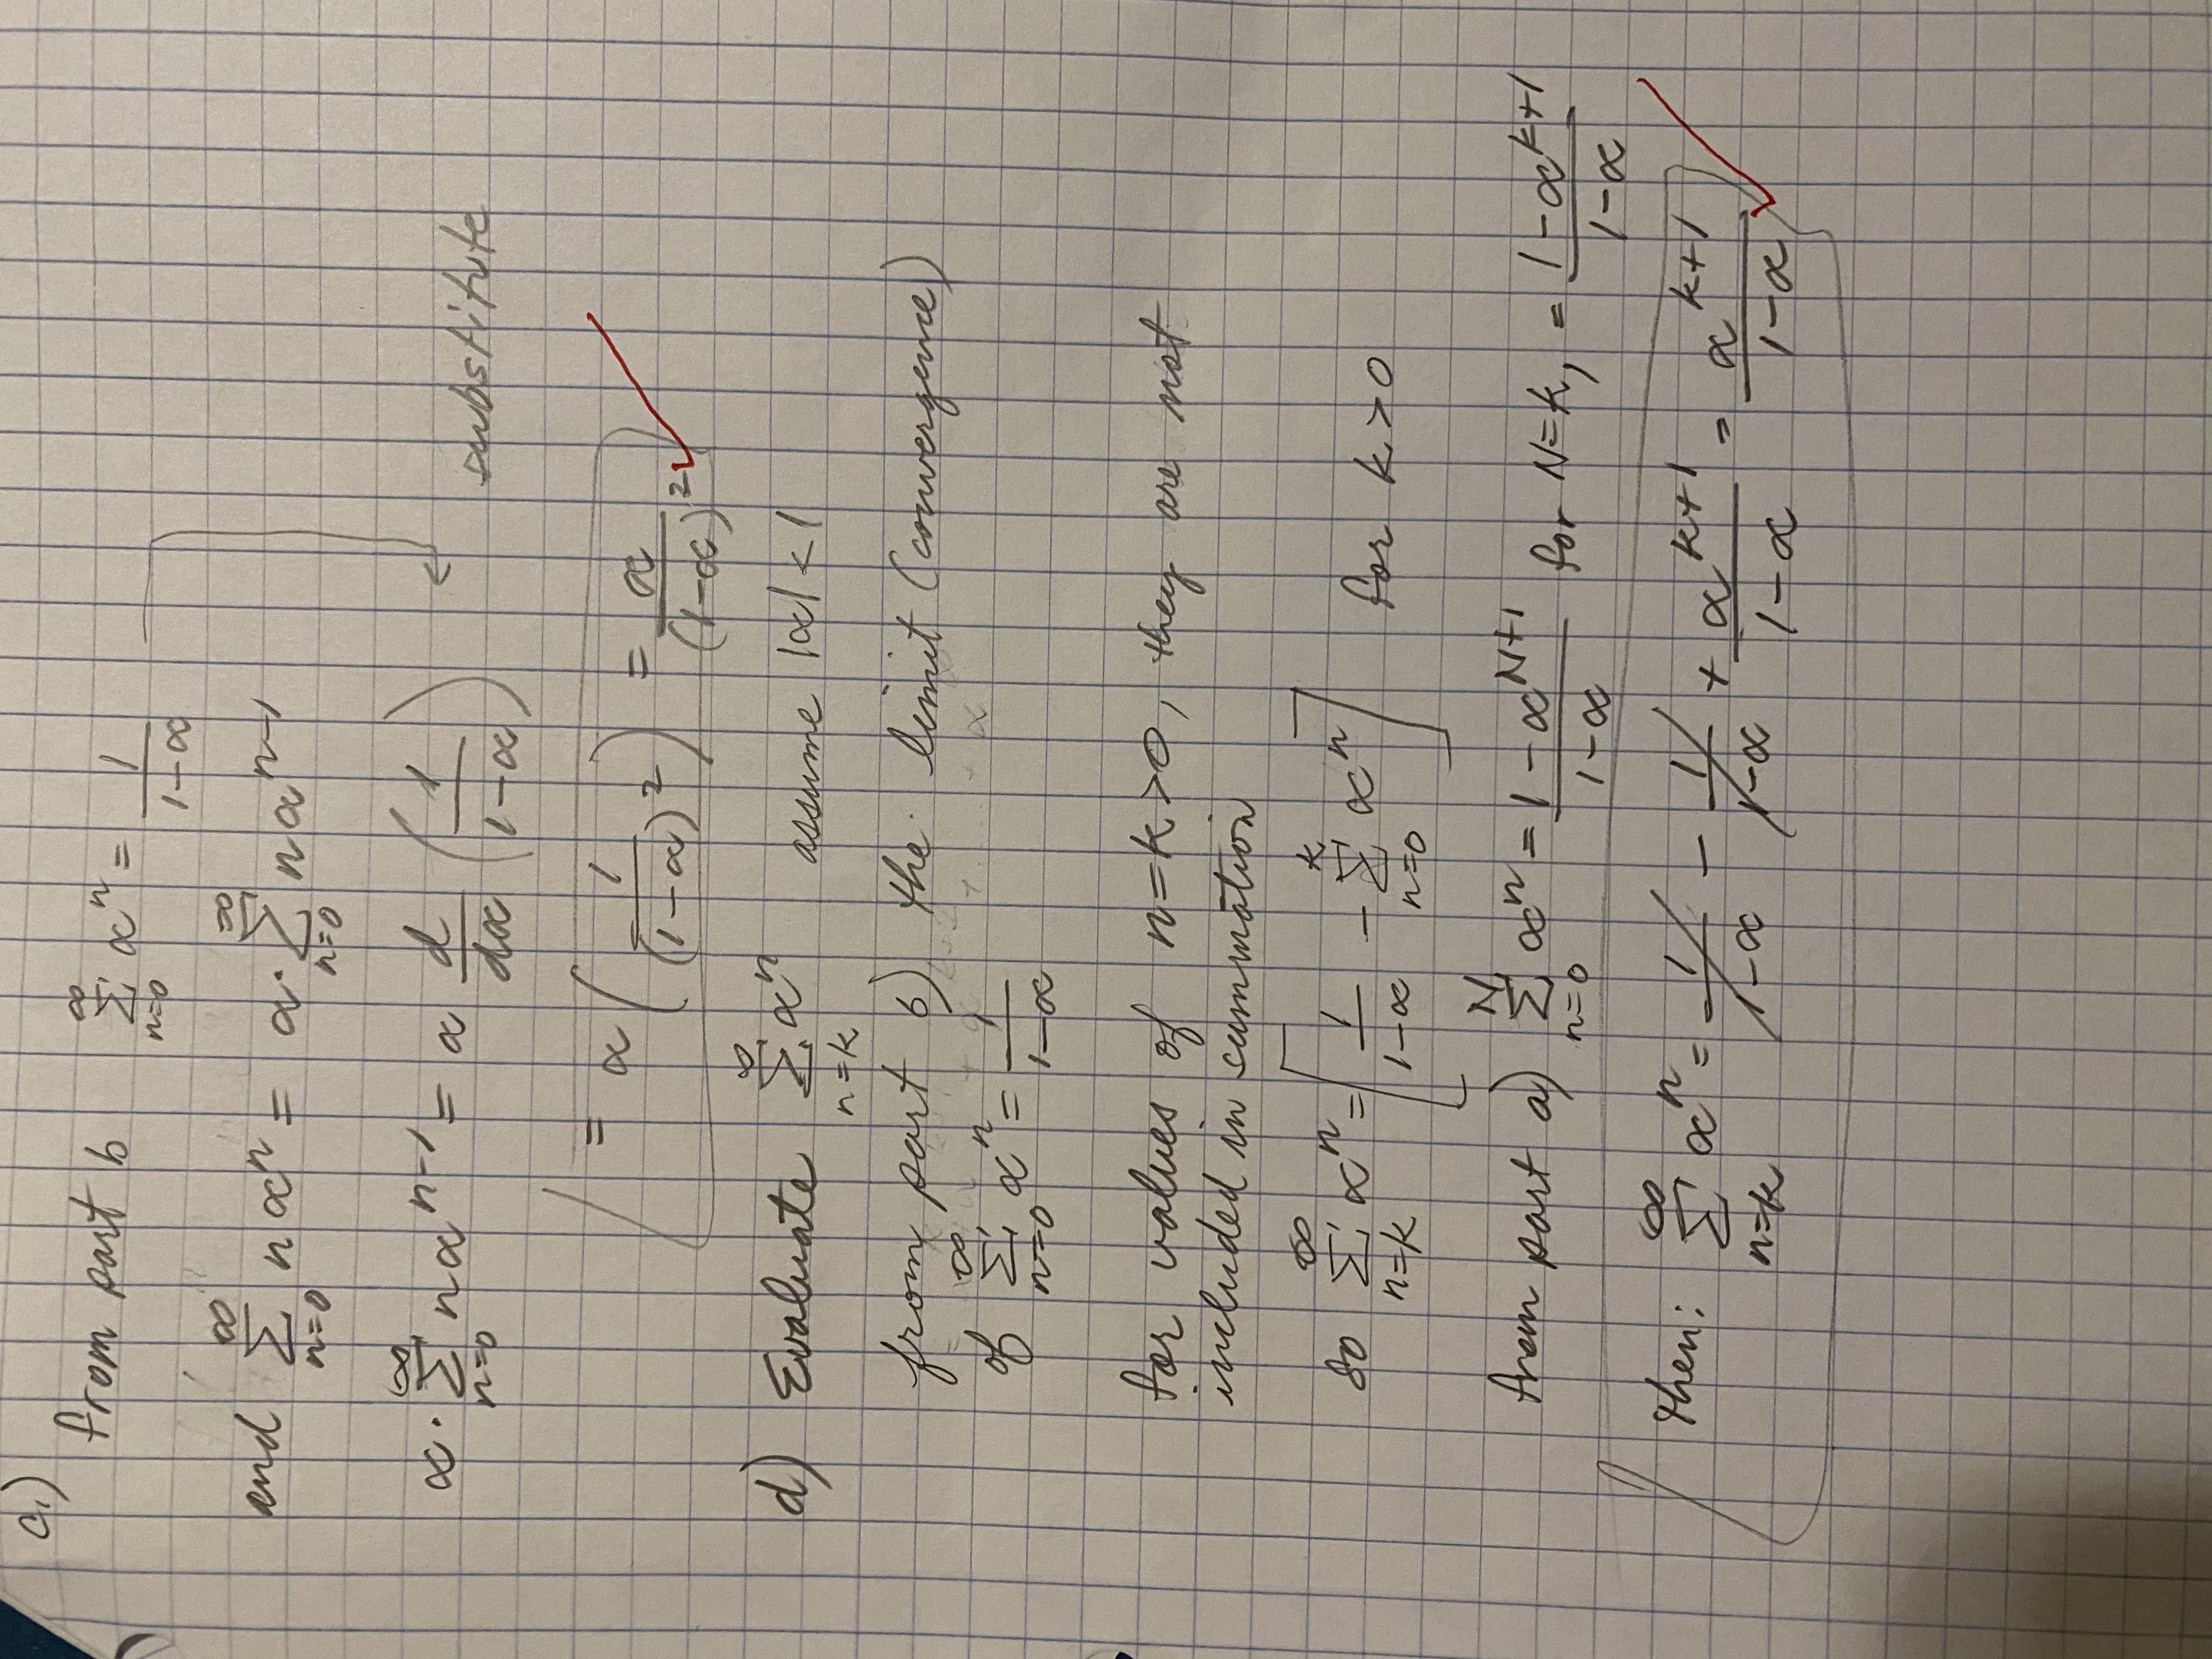 c.) from part b ∑_{n=0}^{∞} α^n = 1/(1-α)
and ∑_{n=0}^{∞} n α^n = α · ∑_{n=0}^{∞} n α^{n-1}
substitute
α · ∑_{n=0}^{∞} n α^{n-1} = α d/dα (1/(1-α))
= α (1/(1-α)^2) = α/(1-α)^2
d) Evaluate ∑_{n=k}^{∞} α^n assume |α| < 1
from part b) the limit (convergence)
of ∑_{n=0}^{∞} α^n = 1/(1-α)
for values of n=k>0, they are not
included in summation
so ∑_{n=k}^{∞} α^n = [1/(1-α) - ∑_{n=0}^{k} α^n] for k>0
from part a) ∑_{n=0}^{N} α^n = (1-α^{N+1})/(1-α) for N=k, = (1-α^{k+1})/(1-α)
then: ∑_{n=k}^{∞} α^n = 1/(1-α) - 1/(1-α) + α^{k+1}/(1-α) = α^{k+1}/(1-α)